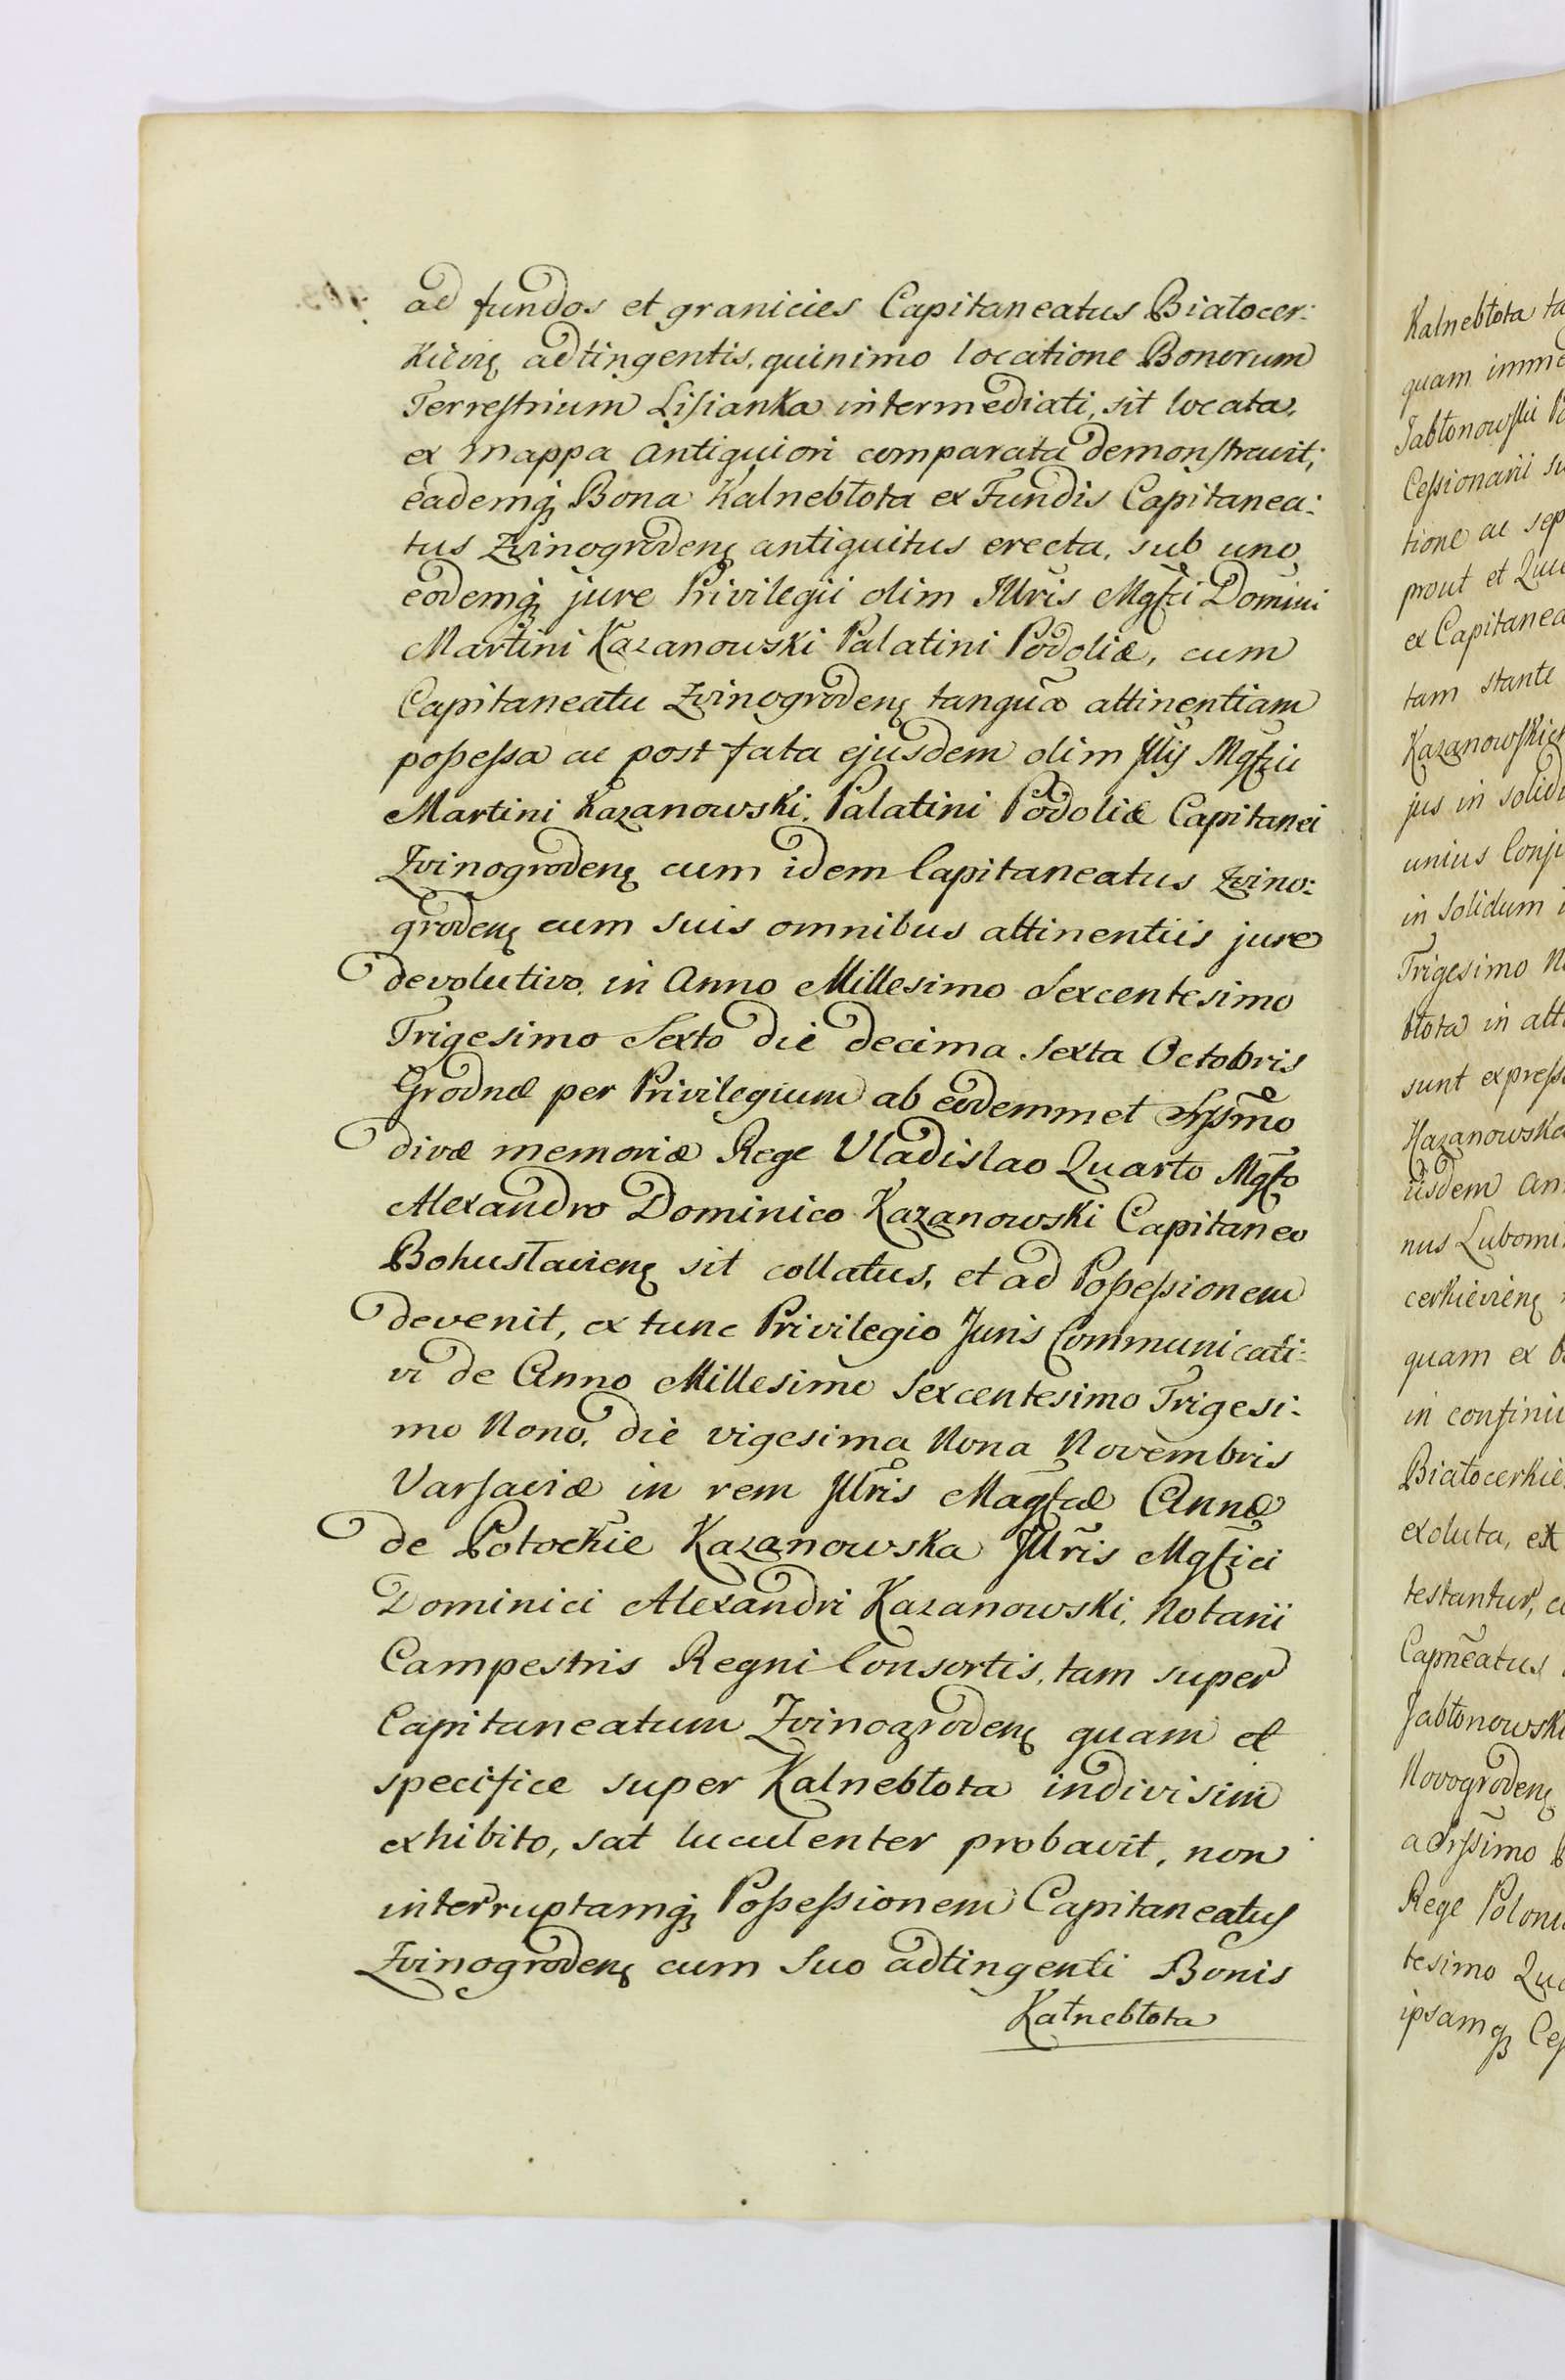 ad fundos et granicies Capitaneatus Białocer:
Kievię adtingentis, quinimo locatione Bonorum
Terrestrium Lisianka intermediati, sit locata,
ex mappa antiquiori comparata demonstravit;
eademq́ꝫ Bona Kalnebłota ex Fundis Capitanea:
tus Zvinogrodenꝭ antiquitus erecta, sub uno
eodemq́ꝫ jure Privilegii olim Illris Mgfci Domini
Martini Kazanowski Palatini Podoliæ, cum
Capitaneatu Zvinogrodenꝭ tanquã attinentiam
possessa ac post fata ejusdem olim Illis Mgfici
Martini Kazanowski, Palatini Podoliæ Capitanei
Zvinogrodenꝭ cum idem Capitaneatus Zvino:
grodenꝭ cum suis omnibus attinentiis jure
devolutivo, in Anno Millesimo Sexcentesimo
Trigesimo Sexto die decima Sexta Octobris
Grodnæ per Privilegium ab eodemmet Srssmo
divæ memoriæ Rege Vladislao Quarto Mgfco
Alexandro Dominico Kazanowski Capitaneo
Bohuslavienꝭ sit collatus, et ad Possessionem
devenit, ex tunc Privilegio Juris Communicati:
vi de Anno Millesimo Sexcentesimo Trigesi:
mo Nono, die vigesima Nona Novembris
Varsaviæ in rem Illris Magfcæ Annæ
de Potockie Kazanowska Illris Mgfici
Dominici Alexandri Kazanowski, Notarii
Campestris Regni Consortis, tam super
Capitaneatum Zvinogrodenꝭ quam et
specifice super Kalnebłota indivisim
exhibito, sat luculenter probavit, non
interruptamq́ꝫ Possessionem Capitaneatus
Zvinogrodenꝭ cum Suo adtingenti Bonis
Kałnebłota
Kalnebłota ta
quam imme
Jabłonowski Pa
Cessionarii su
tione ac sep
prout et Que
ex Capitanea
tam stante
Kazanowskich
jus in solidu
unius Conju
in Solidum i
Trigesimo N
błota in att
sunt expressa
Kazanowska
iisdem An
nus Lubomi
cerkievienꝭ
quam ex b
in confinii
Białocerkie
exoluta, et
testantur, c
Capneatus
Jabłonowski
Novogrodenꝭ
a Srssimo
Rege Poloni
tesimo Qua
ipsamqꝫ Ces